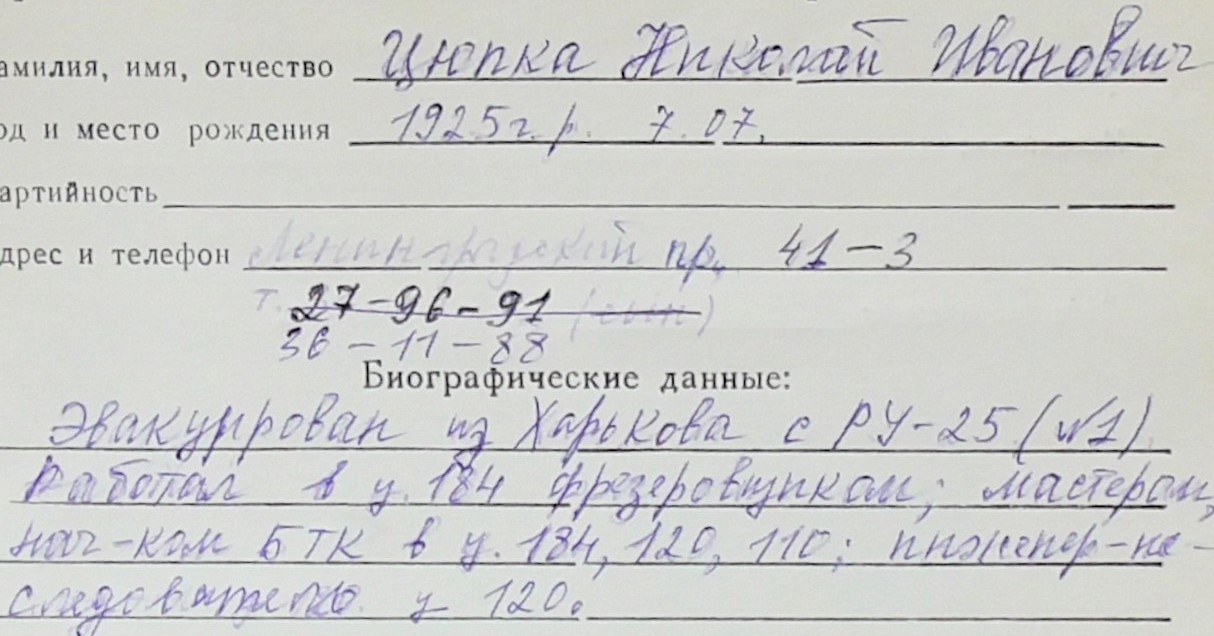 амилия, имя, отчество Цюпка Николай Иванович
од и место рождения 1925 г. р. 7.07.
артийность
дрес и телефон Ленинградский пр. 41-3
т. 27-96-91 (сын)
36-11-88
Биографические данные:
Эвакуирован из Харькова с РУ-25 (№1).
Работал в ц. 184 фрезеровщиком; мастером,
нач-ком БТК в ц. 184, 120, 110; инженер-ис-
следователь ц 120.